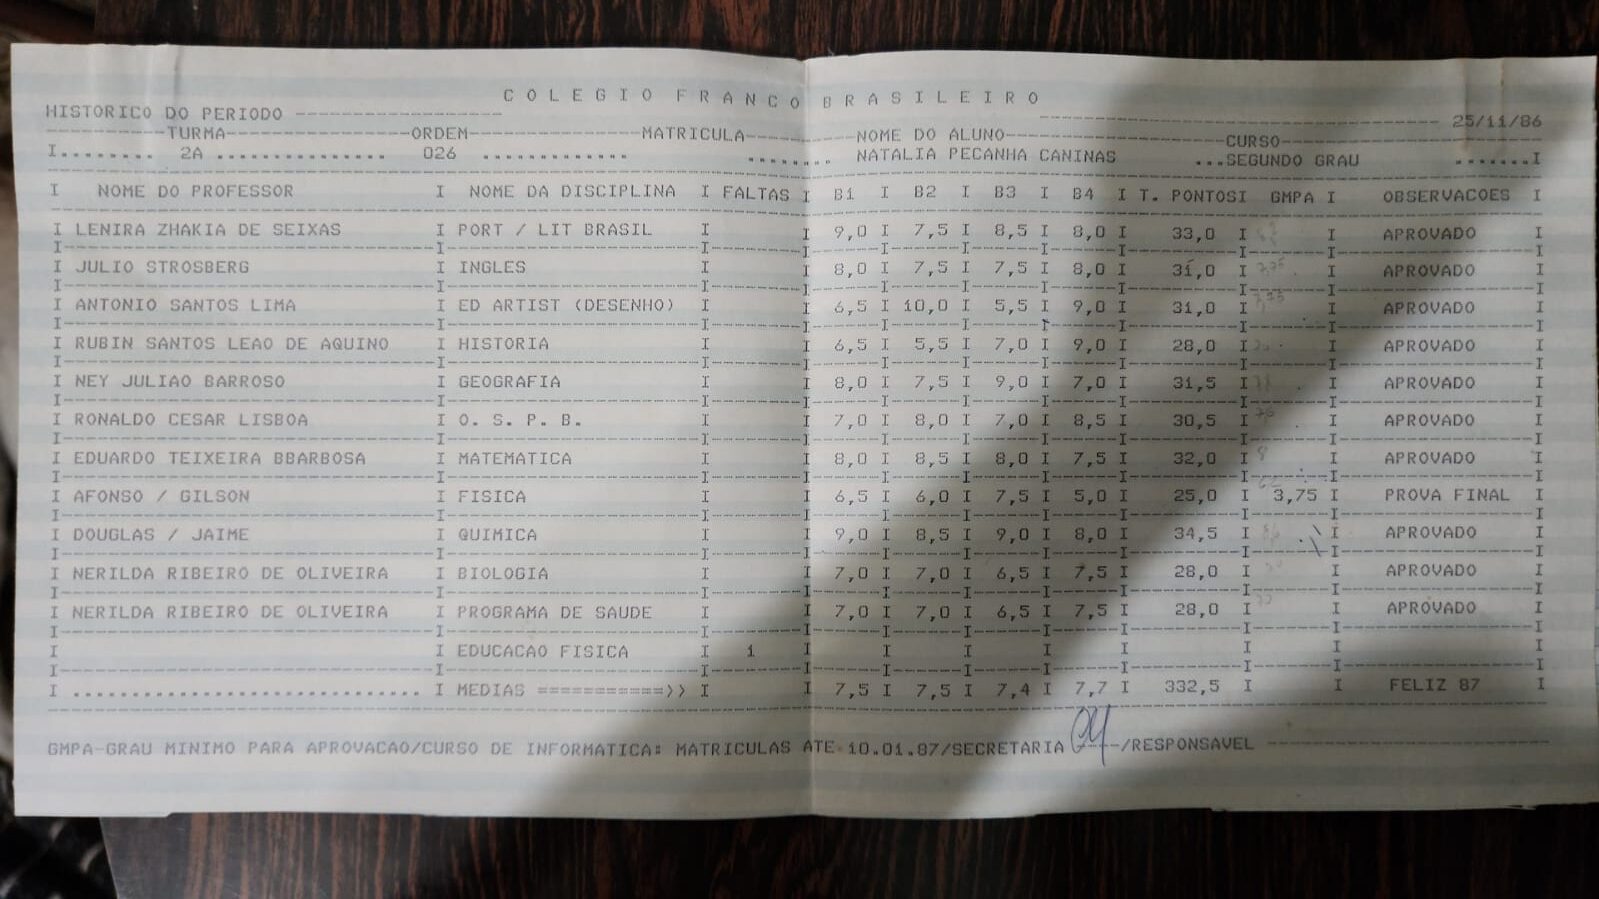 COLEGIO FRANCO BRASILEIRO
HISTORICO DO PERIODO -------------------- 25/11/86
------------TURMA-------------------ORDEM------------------MATRICULA------------NOME DO ALUNO----------------------CURSO------------------
I........ 2A ............... 026 ............. ........ NATALIA PECANHA CANINAS ...SEGUNDO GRAU .......I
I NOME DO PROFESSOR I NOME DA DISCIPLINA I FALTAS I B1 I B2 I B3 I B4 I T. PONTOSI GMPA I OBSERVACOES I
I LENIRA ZHAKIA DE SEIXAS I PORT / LIT BRASIL I I 9,0 I 7,5 I 8,5 I 8,0 I 33,0 I I APROVADO I
I JULIO STROSBERG I INGLES I I 8,0 I 7,5 I 7,5 I 8,0 I 31,0 I 7,75 I APROVADO I
I ANTONIO SANTOS LIMA I ED ARTIST (DESENHO) I I 6,5 I 10,0 I 5,5 I 9,0 I 31,0 I 7,75 I APROVADO I
I RUBIN SANTOS LEAO DE AQUINO I HISTORIA I I 6,5 I 5,5 I 7,0 I 9,0 I 28,0 I I APROVADO I
I NEY JULIAO BARROSO I GEOGRAFIA I I 8,0 I 7,5 I 9,0 I 7,0 I 31,5 I I APROVADO I
I RONALDO CESAR LISBOA I O. S. P. B. I I 7,0 I 8,0 I 7,0 I 8,5 I 30,5 I I APROVADO I
I EDUARDO TEIXEIRA BBARBOSA I MATEMATICA I I 8,0 I 8,5 I 8,0 I 7,5 I 32,0 I 8 I APROVADO I
I AFONSO / GILSON I FISICA I I 6,5 I 6,0 I 7,5 I 5,0 I 25,0 I 3,75 I PROVA FINAL I
I DOUGLAS / JAIME I QUIMICA I I 9,0 I 8,5 I 9,0 I 8,0 I 34,5 I I APROVADO I
I NERILDA RIBEIRO DE OLIVEIRA I BIOLOGIA I I 7,0 I 7,0 I 6,5 I 7,5 I 28,0 I I APROVADO I
I NERILDA RIBEIRO DE OLIVEIRA I PROGRAMA DE SAUDE I I 7,0 I 7,0 I 6,5 I 7,5 I 28,0 I I APROVADO I
I I EDUCACAO FISICA I 1 I I I I I I I I
I .............................. I MEDIAS ===========>> I I 7,5 I 7,5 I 7,4 I 7,7 I 332,5 I I FELIZ 87 I
GMPA-GRAU MINIMO PARA APROVACAO/CURSO DE INFORMATICA: MATRICULAS ATE 10.01.87/SECRETARIA ----/RESPONSAVEL --------------------